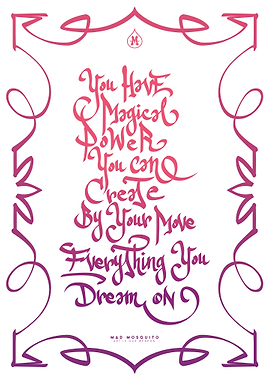 M
You Have
Magical
Power
You can
Create
By Your Move
Everything You
Dream on
MAD MOSQUITO